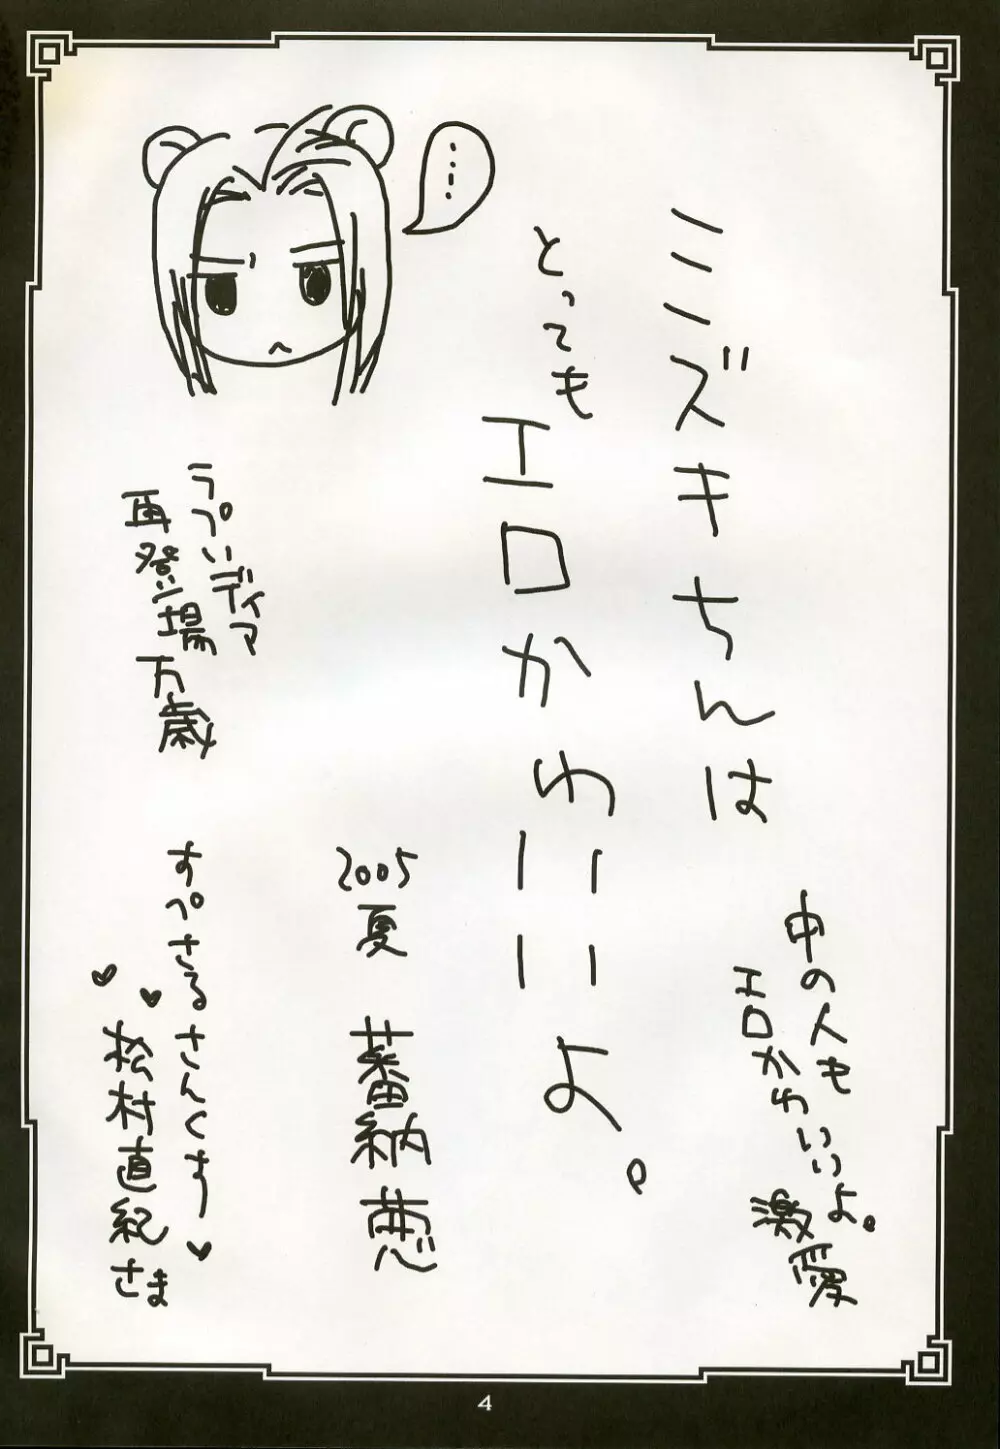 ミズキちんは
とっても
エロかわいいよ。
中の人も
エロかわいいよ。
激愛
2005夏 蕃納葱
……
ラプいディア
再登場万歳
すぺさるさんくす♥
♥♥松村直紀さま
4